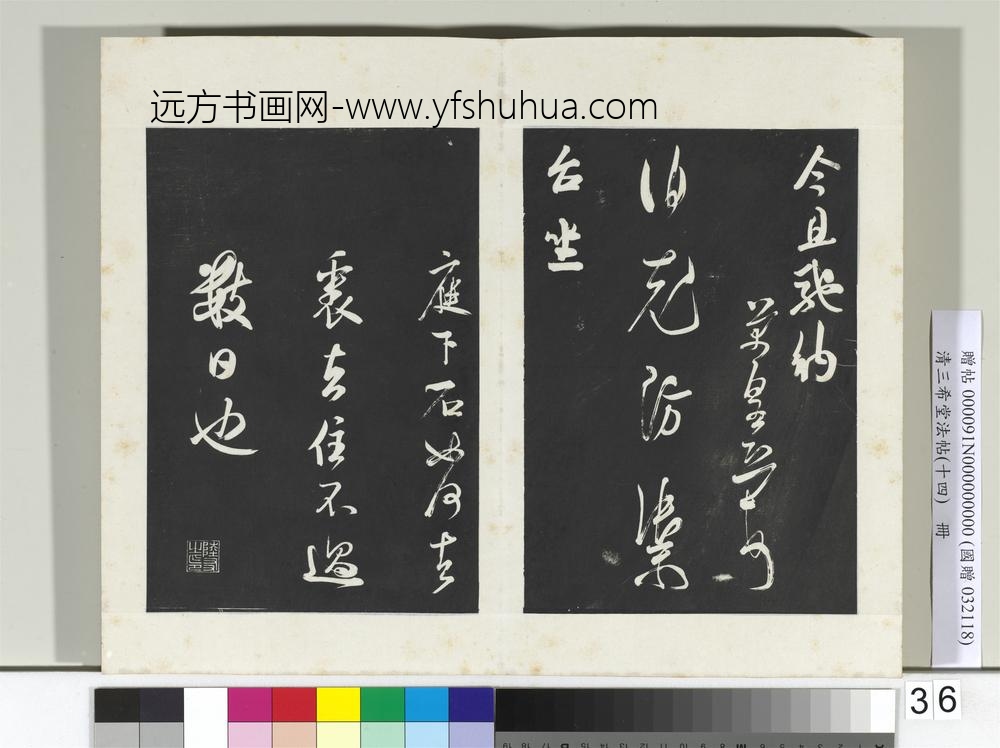 远方书画网-www.yfshuhua.com
今且驰纳
伯充防御
台坐
庭下石如何去
裹去住不過
數日也
贈帖 000091N000000000 (國贈 032118)
清三希堂法帖(十四) 冊
36